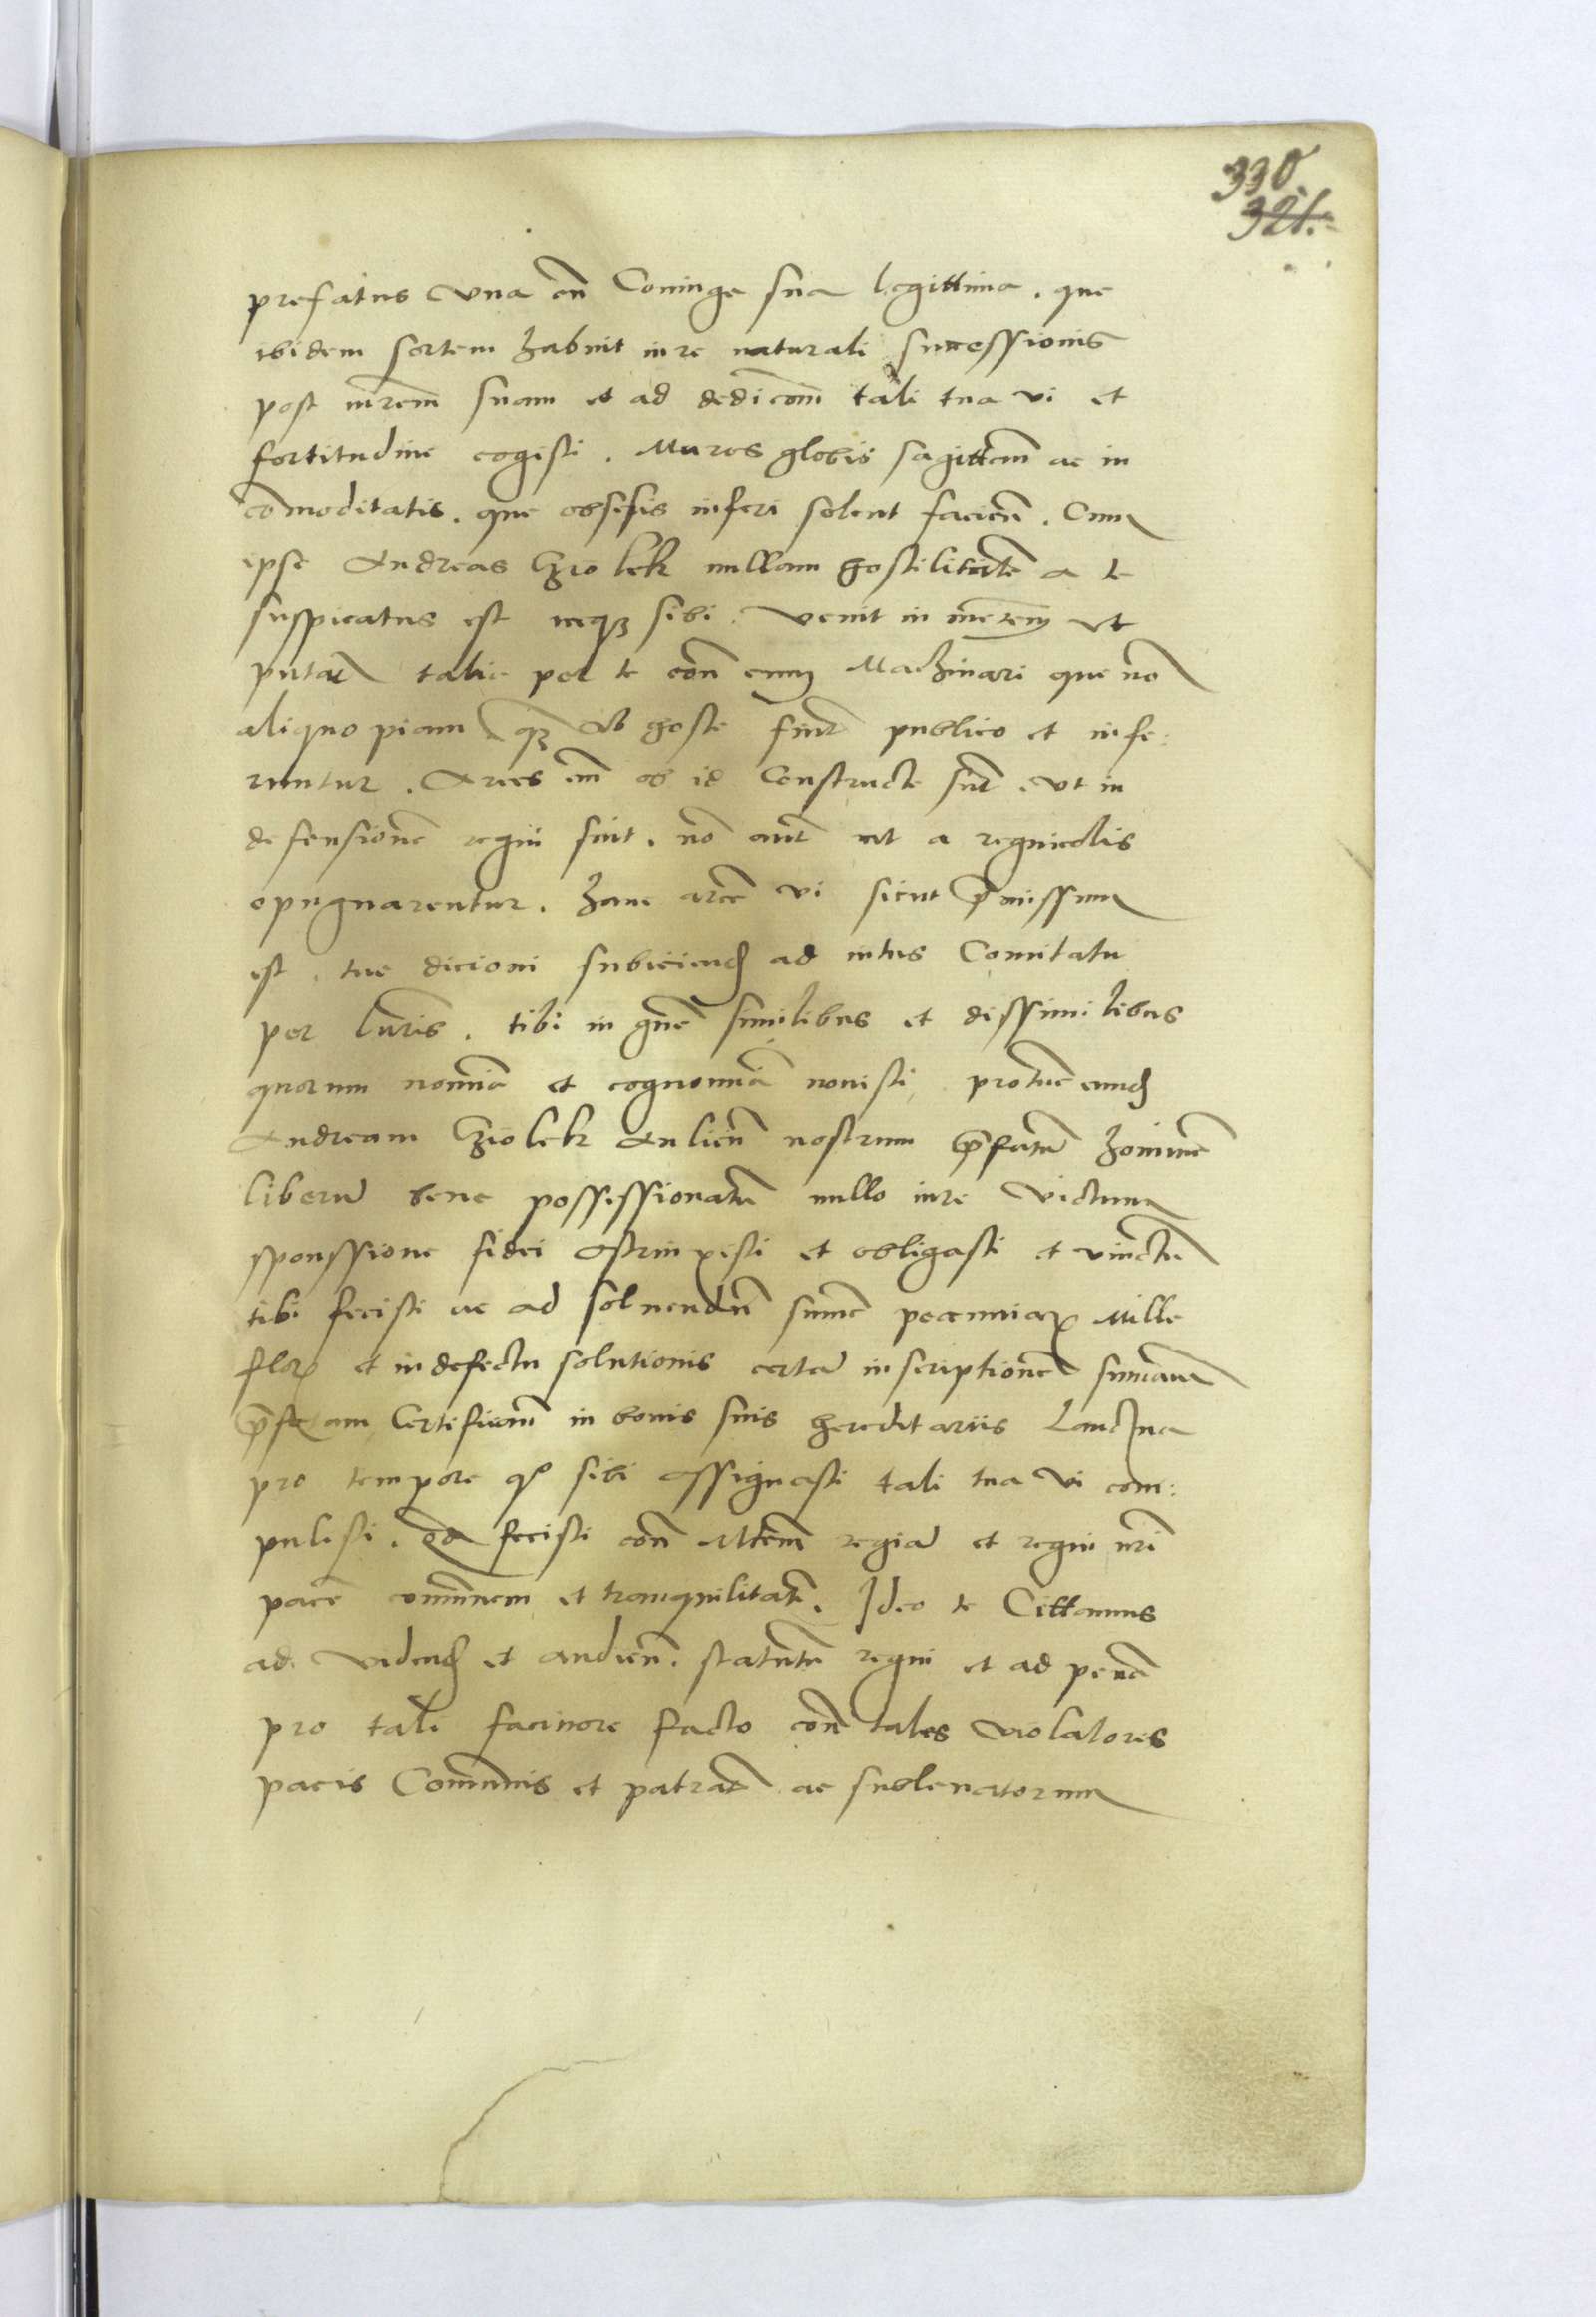 330.
321.
prefatus una cu Coniuge sua legittima. que
ibidem sortem habuit iure naturali successionis
post mrem suam et ad dedicom tali tua vi et
fortitudine cogisti. Muros globis sagittem ac in
comoditatis. que obsesis inferi solent facien. Cum
ipse Andreas Cziolek nullam hostilitate a te
suspicatus est neqz sibi. venit in metem ut
putat talia per te con eum Machinari que no
aliquo piam qz ab hoste fiut publico et infe:
runtur. Arces em ob id Constructe sut. ut in
defensione regni sint. no aut ut a regnicolis
opugnarentur. hanc arce vi sicut pmissum
est. tue dicioni subiiciend ad intus Comitatu
per lris. tibi in gne similibus et dissimilibus
quorum nomia et cognomia novisti, protuc eund
Andream Cziolek Aulicu nostrum pfatu homine
liberu bene possessionatu nullo iure victum
sponssione fidei astrinxisti et obligasti et vinctu
tibi fecisti ac ad solvendu sume pecuniar Mille
flor et in defectu solutionis certa inscriptione sumam
pfatam Certificom in bonis suis hereditariis
pro tempore qo sibi assignasti tali tua vi com:
pulisti. qd fecisti con Mtem regia et regni nri
pace comunem et tranquilitate. Ideo te Cittamus
ad vidend et audien. statutu regni et ad pena
pro tali facinore facto con tales violatores
pacis Comunis et patrat ac sublevatorum